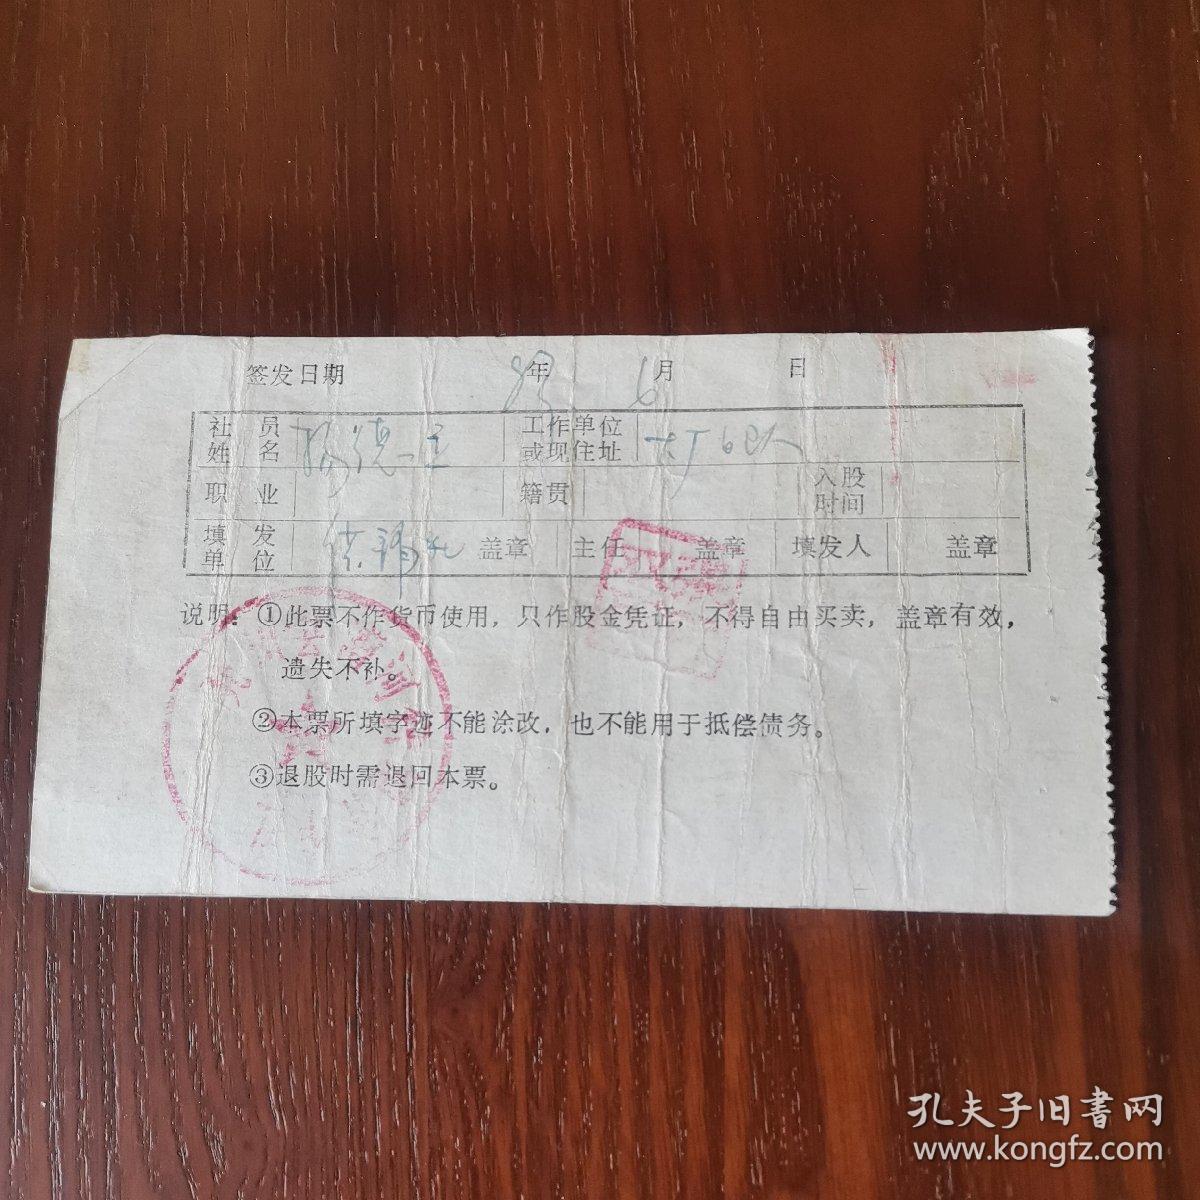 签发日期 年 6 月 日
社员姓名 杨德 工作单位或现住址 大厂
职业 籍贯 入股时间
填发单位 盖章 主任 盖章 填发人 盖章
说明：①此票不作货币使用，只作股金凭证，不得自由买卖，盖章有效，
遗失不补。
②本票所填字迹不能涂改，也不能用于抵偿债务。
③退股时需退回本票。
孔夫子旧书网
www.kongfz.com